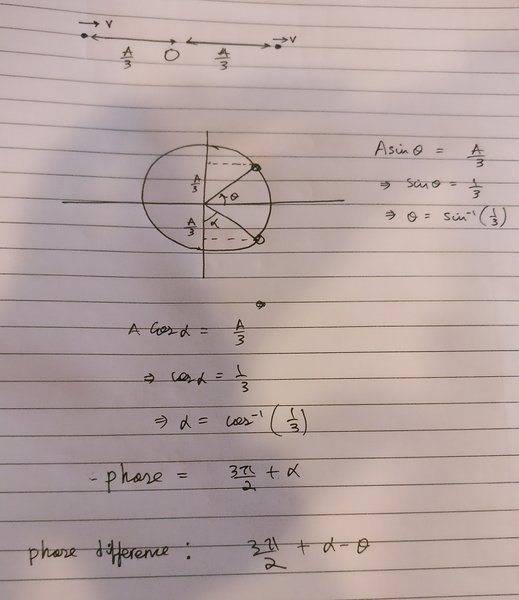 → v → v
A/3 O A/3
A/3 θ
A/3 α
A sin θ = A/3
⇒ sin θ = 1/3
⇒ θ = sin⁻¹(1/3)
A cos α = A/3
⇒ cos α = 1/3
⇒ α = cos⁻¹(1/3)
- phase = 3π/2 + α
phase difference : 3π/2 + α - θ